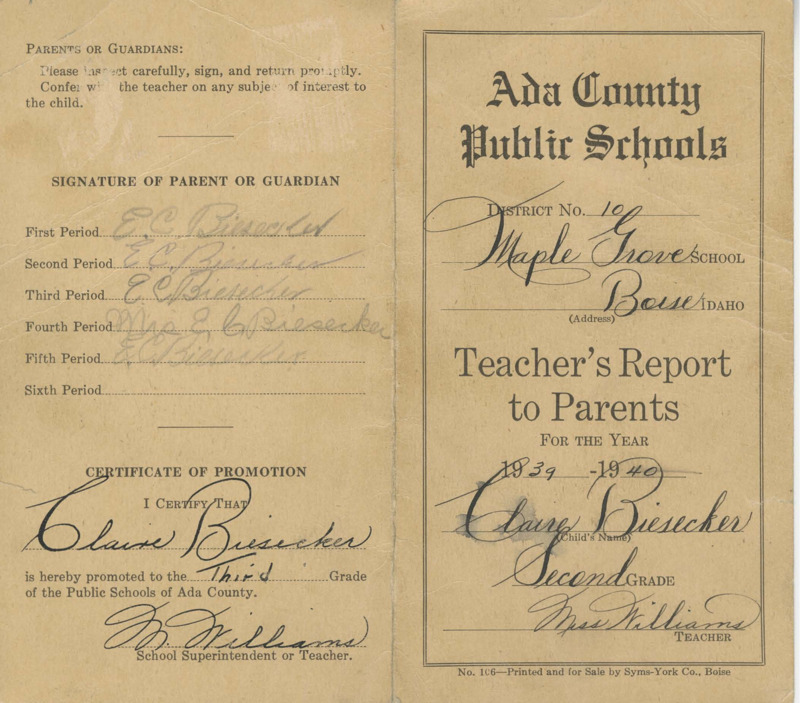 PARENTS OR GUARDIANS:
Please inspect carefully, sign, and return promptly.
Confer with the teacher on any subject of interest to
the child.
SIGNATURE OF PARENT OR GUARDIAN
First Period E. C. Biesecker
Second Period E. C. Biesecker
Third Period E C Biesecker
Fourth Period Mrs E C Biesecker
Fifth Period E. C. Biesecker
Sixth Period
CERTIFICATE OF PROMOTION
I CERTIFY THAT
Claire Biesecker
is hereby promoted to the Third Grade
of the Public Schools of Ada County.
M. Williams
School Superintendent or Teacher.
Ada County
Public Schools
DISTRICT NO. 10
Maple Grove SCHOOL
Boise IDAHO
(Address)
Teacher's Report
to Parents
FOR THE YEAR
1939 -1940
Claire Biesecker
(Child's Name)
Second GRADE
Miss Williams
TEACHER
No. 106—Printed and for Sale by Syms-York Co., Boise